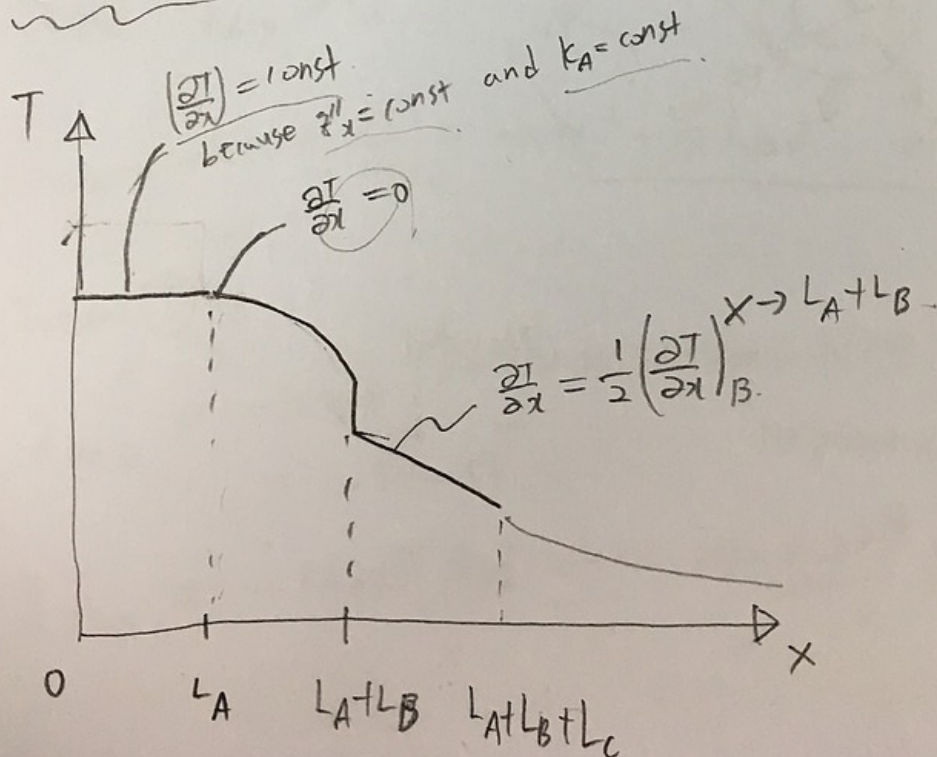 (∂T/∂x) = const.
because q″x = const and kA = const.
T
∂T/∂x = 0
x → LA+LB
∂T/∂x = 1/2 (∂T/∂x)B.
x
0
LA
LA+LB
LA+LB+LC